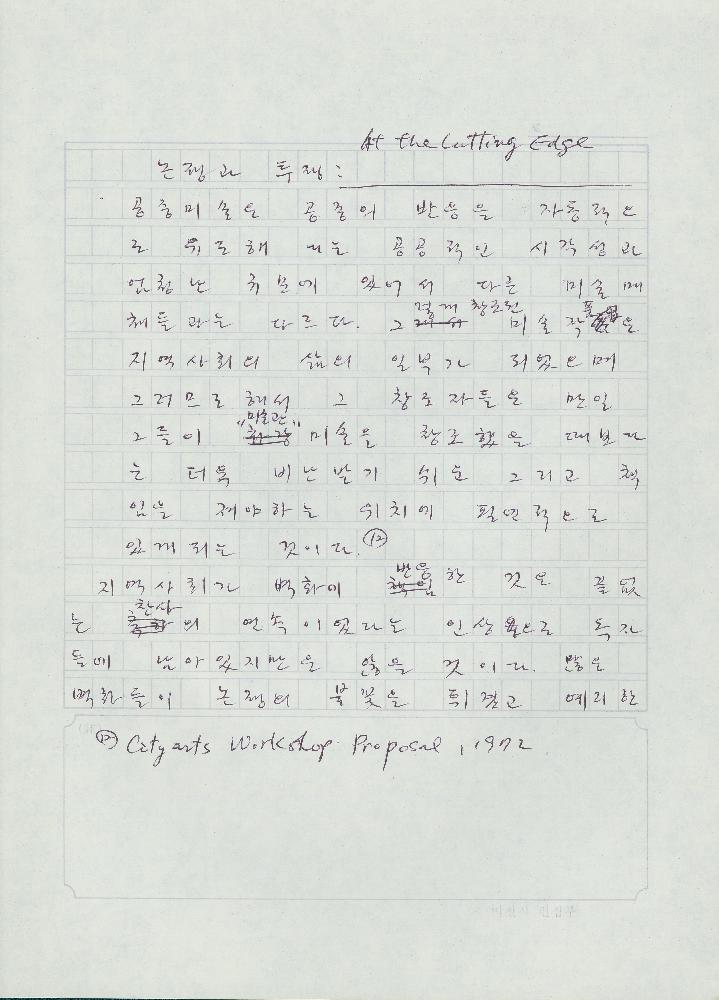 At the Cutting Edge
논쟁과 투쟁:
공중미술은 공중의 반응을 자동적으
로 위로해 나는 공공적인 시각성과
엄청난 규모에 있어서 다른 미술매
체들과는 다르다. 그렇게 창조된 미술작품은
지역사회의 삶의 일부가 되었으며
그러므로 해서 그 창조자들은 만일
그들이 "미술관" 미술을 창조했을 때보다
는 더욱 비난받기 쉬운 그리고 책
임을 져야하는 위치에 필연적으로
있게 되는 것이다. ⑫
지역사회가 벽화에 반응한 것은 끝없
는 찬사의 연속이었다는 인상으로 독자
들에 남아있지만은 않을 것이다. 많은
벽화들이 논쟁의 불꽃을 튀겼고 예리한
⑫ City arts Workshop Proposal, 1972